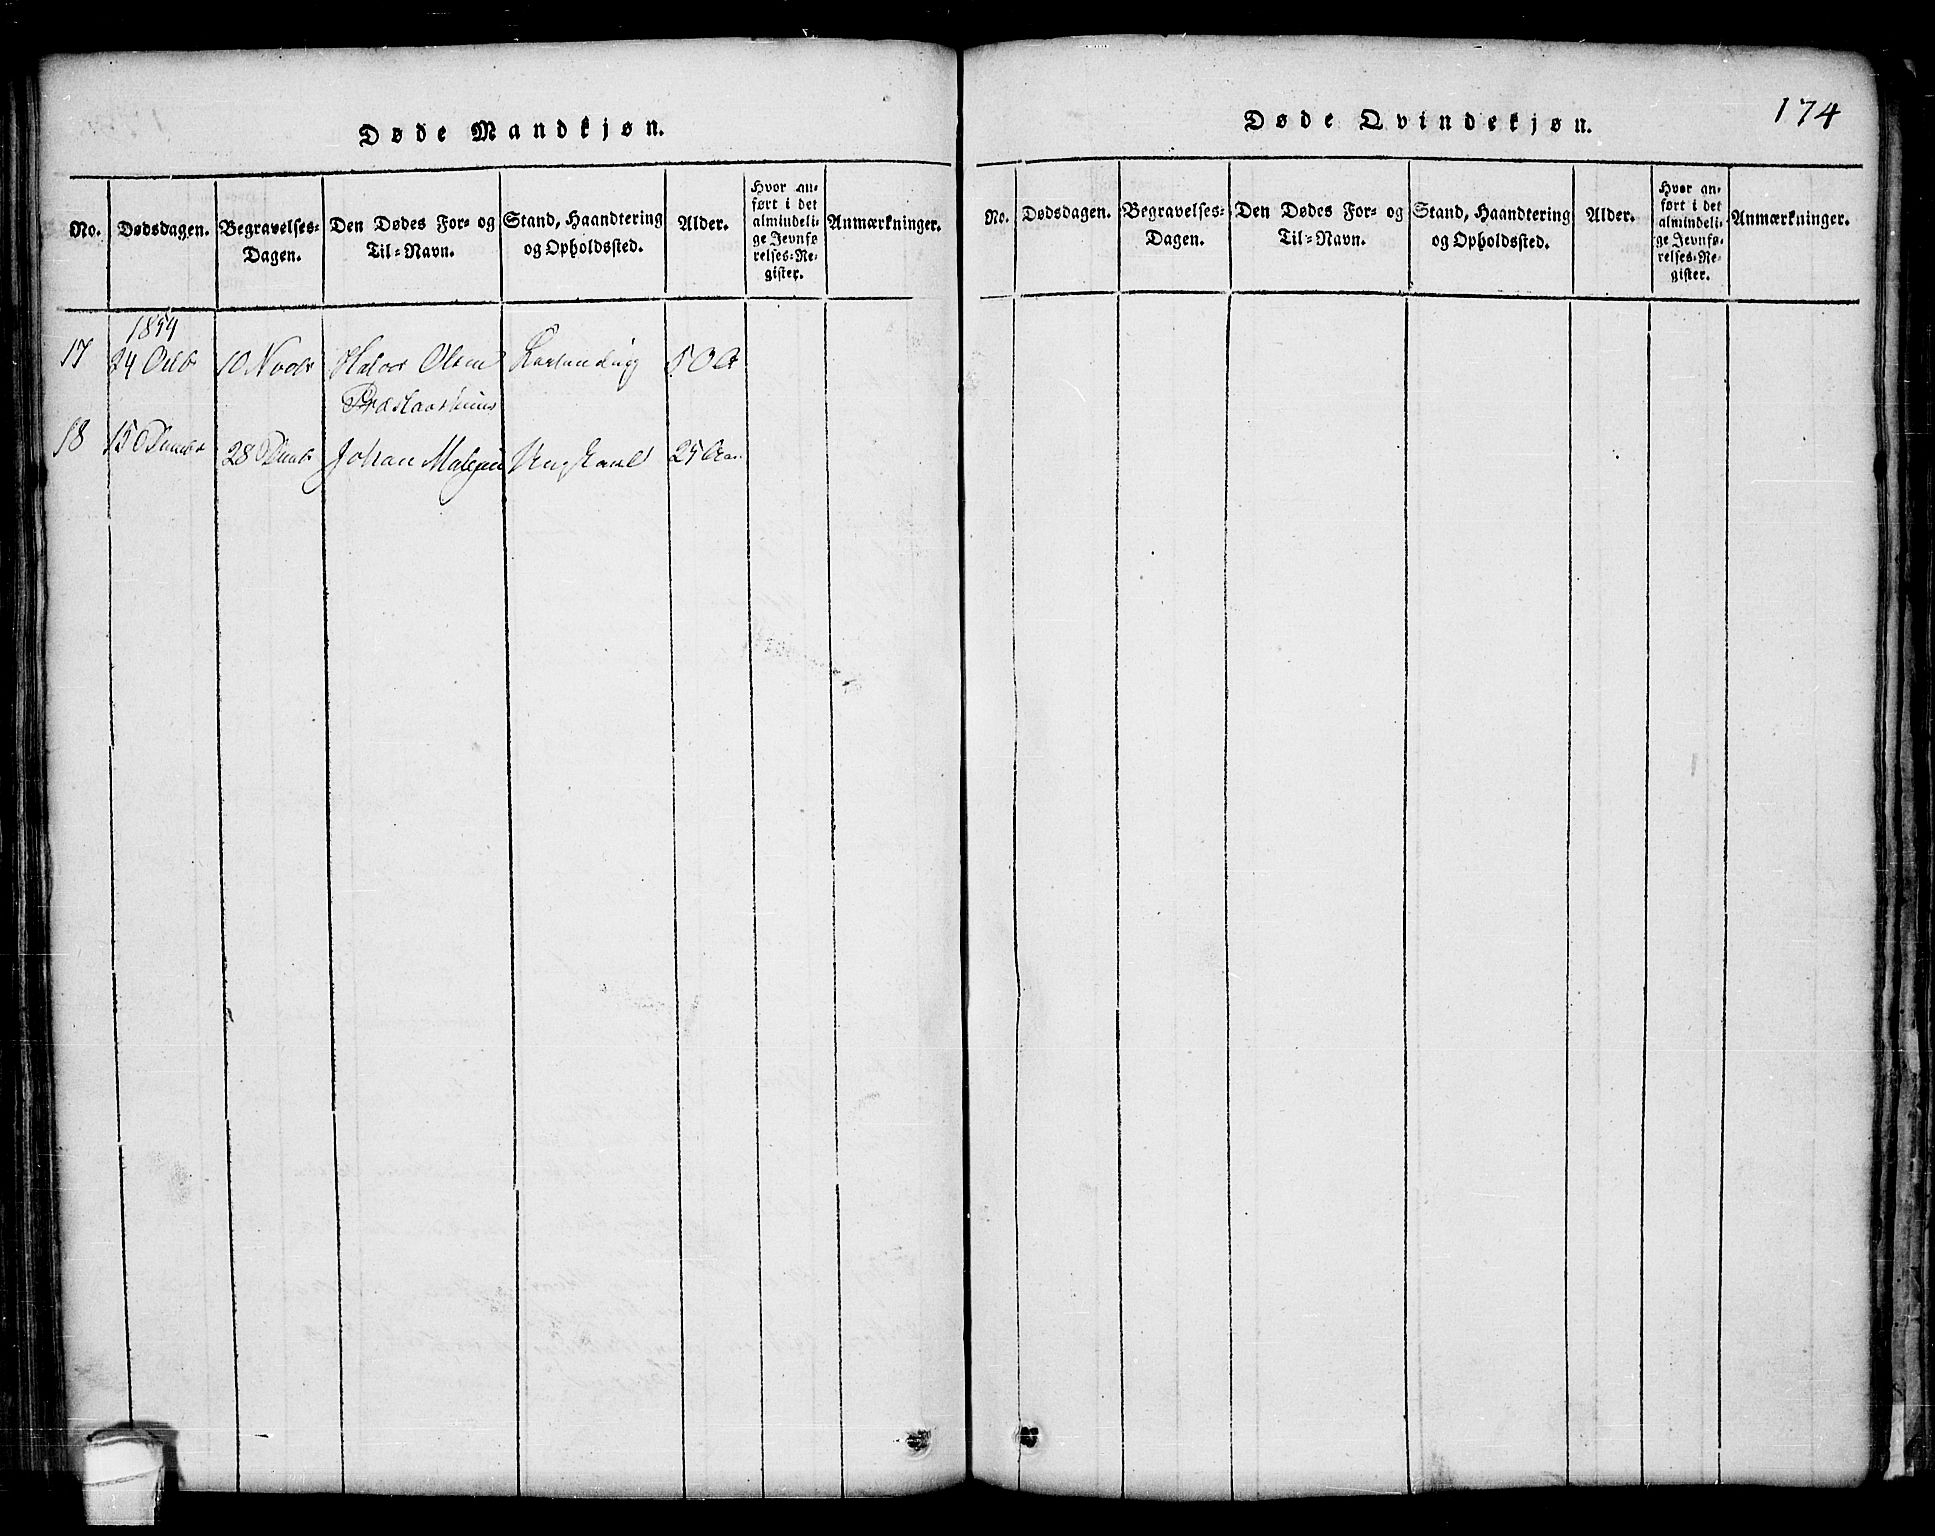 Døde Mandkjøn.
No. Dødsdagen. Begravelses-Dagen. Den Dødes For- og Til-Navn. Stand, Haandtering og Opholdssted. Alder. Hvor anført i det almindelige Jevnførelses-Register. Anmærkninger.
1854
17 24 Octb 10 Novbr Halvor Olsen 50 A
18 15 Decembr 28 Decbr Johan Ungkarl 25 Aar
174
Døde Qvindekjøn.
No. Dødsdagen. Begravelses-Dagen. Den Dødes For- og Til-Navn. Stand, Haandtering og Opholdssted. Alder. Hvor anført i det almindelige Jevnførelses-Register. Anmærkninger.